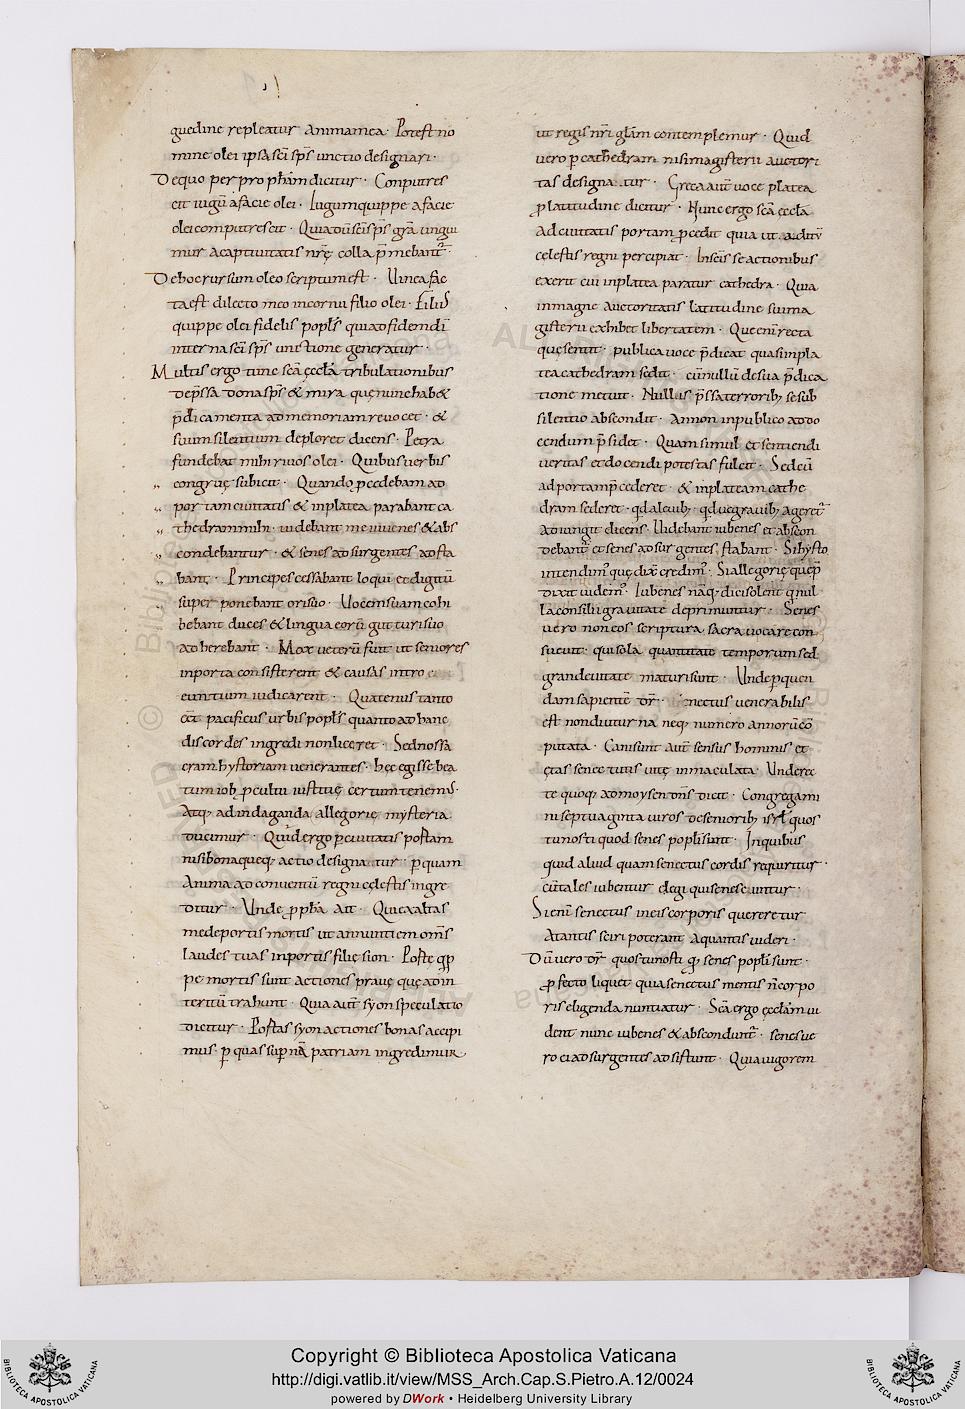 guedine repleatur anima mea. Potest no
mine olei ipsa sc̄i sp̄s unctio designari.
De quo per prophā̄m dicitur. Conputres
cit iugū a facie olei. Iugum quippe a facie
olei computrescit. Quia dū sc̄i sp̄s grā ungui
mur a captivitatis nr̄ę colla p̄mebant᷒.
De hoc rursum oleo scriptum est. Vinea fac
ta est dilecto meo in cornu filio olei. Filius
quippe olei fidelis popl̄s quia ad fidem dī
interna sc̄i sp̄s unctione generatur.
Multis ergo tunc sc̄a ęccl̄a tribulationibus
dep̄ssa dona sp̄s & mira quę nunc hab&
p̄dicamenta ad memoriam revocet. &
suum silentium deploret dicens. Petra
fundebat mihi rivos olei. Quibus verbis
congruę subicit. Quando ꝓcedebam ad
portam civitatis & in platea parabant ca
thedram mihi. videbant me iuvenes & abs
condebantur. & senes adsurgentes adsta
bant. Principes cessabant loqui et digitū
super ponebant ori suo. Vocem suam cohi
bebant duces & lingua eorū gutturi suo
adherebant. Mox veterū fuit ut seniores
in porta consisterent & causas intro
euntium iudicarent. Quatenus tanto
ēēt pacificus urbis popl̄s quanto ad hanc
discordes ingredi non liceret. Sed nos sa
cram hystoriam venerantes. hęc egisse bea
tum iob ꝓ cultu iustitię certum tenemus.
Atq; ad indaganda allegorię mysteria
ducimur. Quid ergo ꝑ civitatis portam
nisi bona queq; actio designatur. ꝑ quam
anima ad conventū regni cęlestis ingre
ditur. Unde ꝓph̄a ait. Qui exaltas
me de portis mortis ut annuntiem om̄s
laudes tuas in portis filię sion. Porte q̄ꝑ
pe mortis sunt actiones pravę quę ad in
teritū trahunt. Quia aut̄ syon speculatio
dicitur. Portas syon actiones bonas accipi
mus ꝑ quas supnā patriam ingredimur
ut regis nr̄i glā̄m contemplemur. Quid
vero ꝑ cathedram nisi magisterii auctori
tas designatur. Greca aut̄ voce platea
ꝓ latitudine dicitur. Nunc ergo sc̄a ęccl̄a
ad civitatis portam ꝓcedit quia ut aditū
celestis regni percipiat. In sc̄is se actionibus
exerit cui in platea paratur cathedra. Quia
in magne auctoritatis latitudine sui ma
gisterii exhibet libertatem. Que enī recta
quę sentit. publica voce p̄dicat quasi in pla
tea cathedram sedit. eū nullū de sua p̄dica
tione metuit. Nullus p̄ssa terrorib; se sub
silentio abscondit. An non in publico addo
cendum p̄sidet. Quam simul et sentiendi
veritas et docendi potestas fulcit. Sed cū
ad portam ꝓcederet. & in plateam cathe
dram sederet. qd̄ a levib; qd̄ ve gravib; ageret᷒
adiungit dicens. Videbant iubenes et abscon
debant᷒ et senes adsurgentes stabant. Si hysto
intendim᷒ quę dix̄ credim᷒. Si allegorię que p̄
dixit videm᷒. Iubenes nāq; dici solent q nul
la consilii gravitate deprimuntur. Senes
vero non eos scriptura sacra vocare con
suevit. qui sola quantitate temporum sed
grandevitate maturi sunt. Unde ꝑ quen
dam sapientē dr̄. Senectus venerabilis
est non diuturna neq; numero annorū cō
putata. Cani sunt aut̄ sensus hominis et
ętas senectutis vitę inmaculata. Unde rec
te quoq; ad moysen dn̄s dicit. Congrega mi
ni septuaginta viros de seniorib; isrl̄ quos
tu nosti quod senes popl̄i sunt. In quibus
quid aliud quam senectus cordis requiritur.
cū tales iubentur elegi qui senes scuntur.
Si enī senectus in eis corporis quereretur
a tantis sciri poterant a quantis videri.
Dū vero dr̄. quos tu nosti qđ senes popl̄i sunt.
ꝓfecto liquet quia senectus mentis n̄ corpo
ris eligenda nuntiatur. Sc̄a ergo ęccl̄am vi
dent nunc iubenes & abscondunt᷒. senes ve
ro ei adsurgentes adsistunt. Quia vigorem
Copyright © Biblioteca Apostolica Vaticana
http://digi.vatlib.it/view/MSS_Arch.Cap.S.Pietro.A.12/0024
powered by DWork • Heidelberg University Library